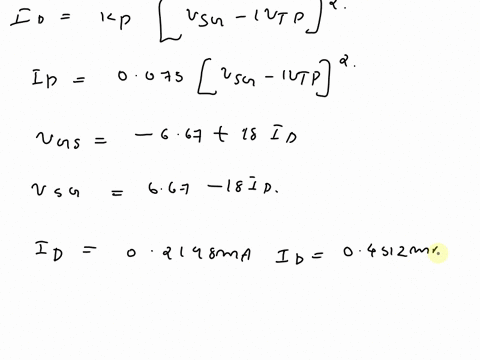 I_D = Kp [V_SG - |V_TP|]^2.
I_D = 0.075 [V_SG - |V_TP]^2.
V_GS = -6.67 + 18 I_D
V_SG = 6.67 - 18 I_D.
I_D = 0.2198mA I_D = 0.4512m